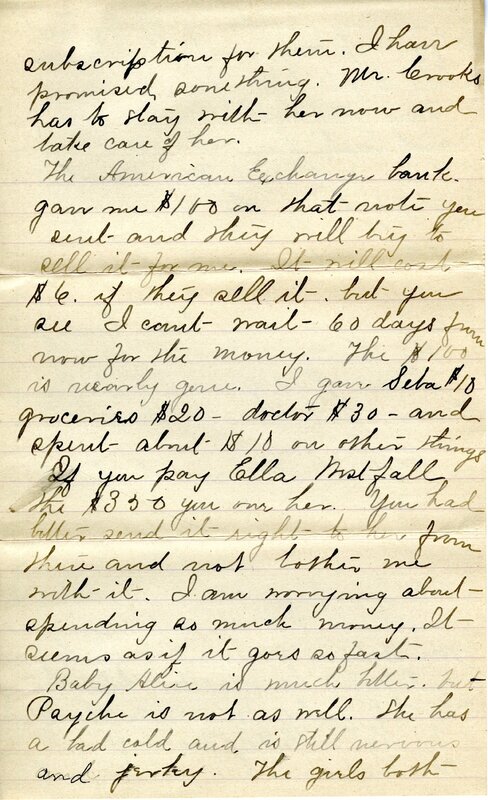 subscription for them. I have
promised something. Mr. Crooks
has to stay with her now and
take care of her.
The American Exchange bank
gave me $100 on that note you
sent and they will try to
sell it for me. It will cost
$6. if they sell it. but you
see I cant wait 60 days from
now for the money. The $100
is nearly gone. I gave Seba $10
groceries $20 - doctor $30 - and
spent about $10 on other things
If you pay Ella Westfall
the $350 you owe her. You had
better send it right to her from
there and not bother me
with it. I am worrying about
spending so much money. It
seems as if it goes so fast.
Baby Alice is much better. but
Psyche is not as well. She has
a bad cold and is still nervous
and jerky. The girls both